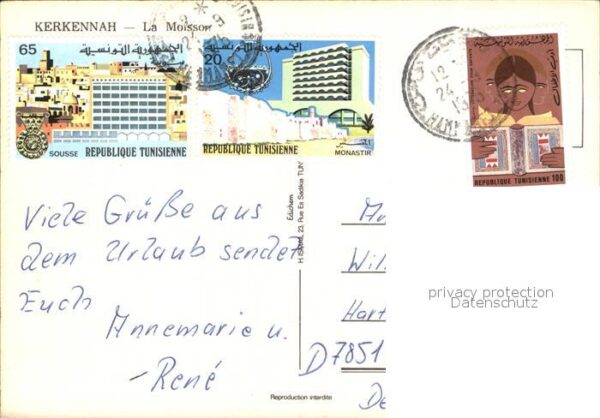 KERKENNAH — La Moisson
65
الجمهورية التونسية
SOUSSE
REPUBLIQUE TUNISIENNE
الجمهورية التونسية
20
REPUBLIQUE TUNISIENNE
MONASTIR
REPUBLIQUE TUNISIENNE 100
Viele Grüße aus
dem Urlaub sendet
Euch
Annemarie u.
- René
Educhem
Reproduction interdite
Wil
Hart
D7851
privacy protection
Datenschutz